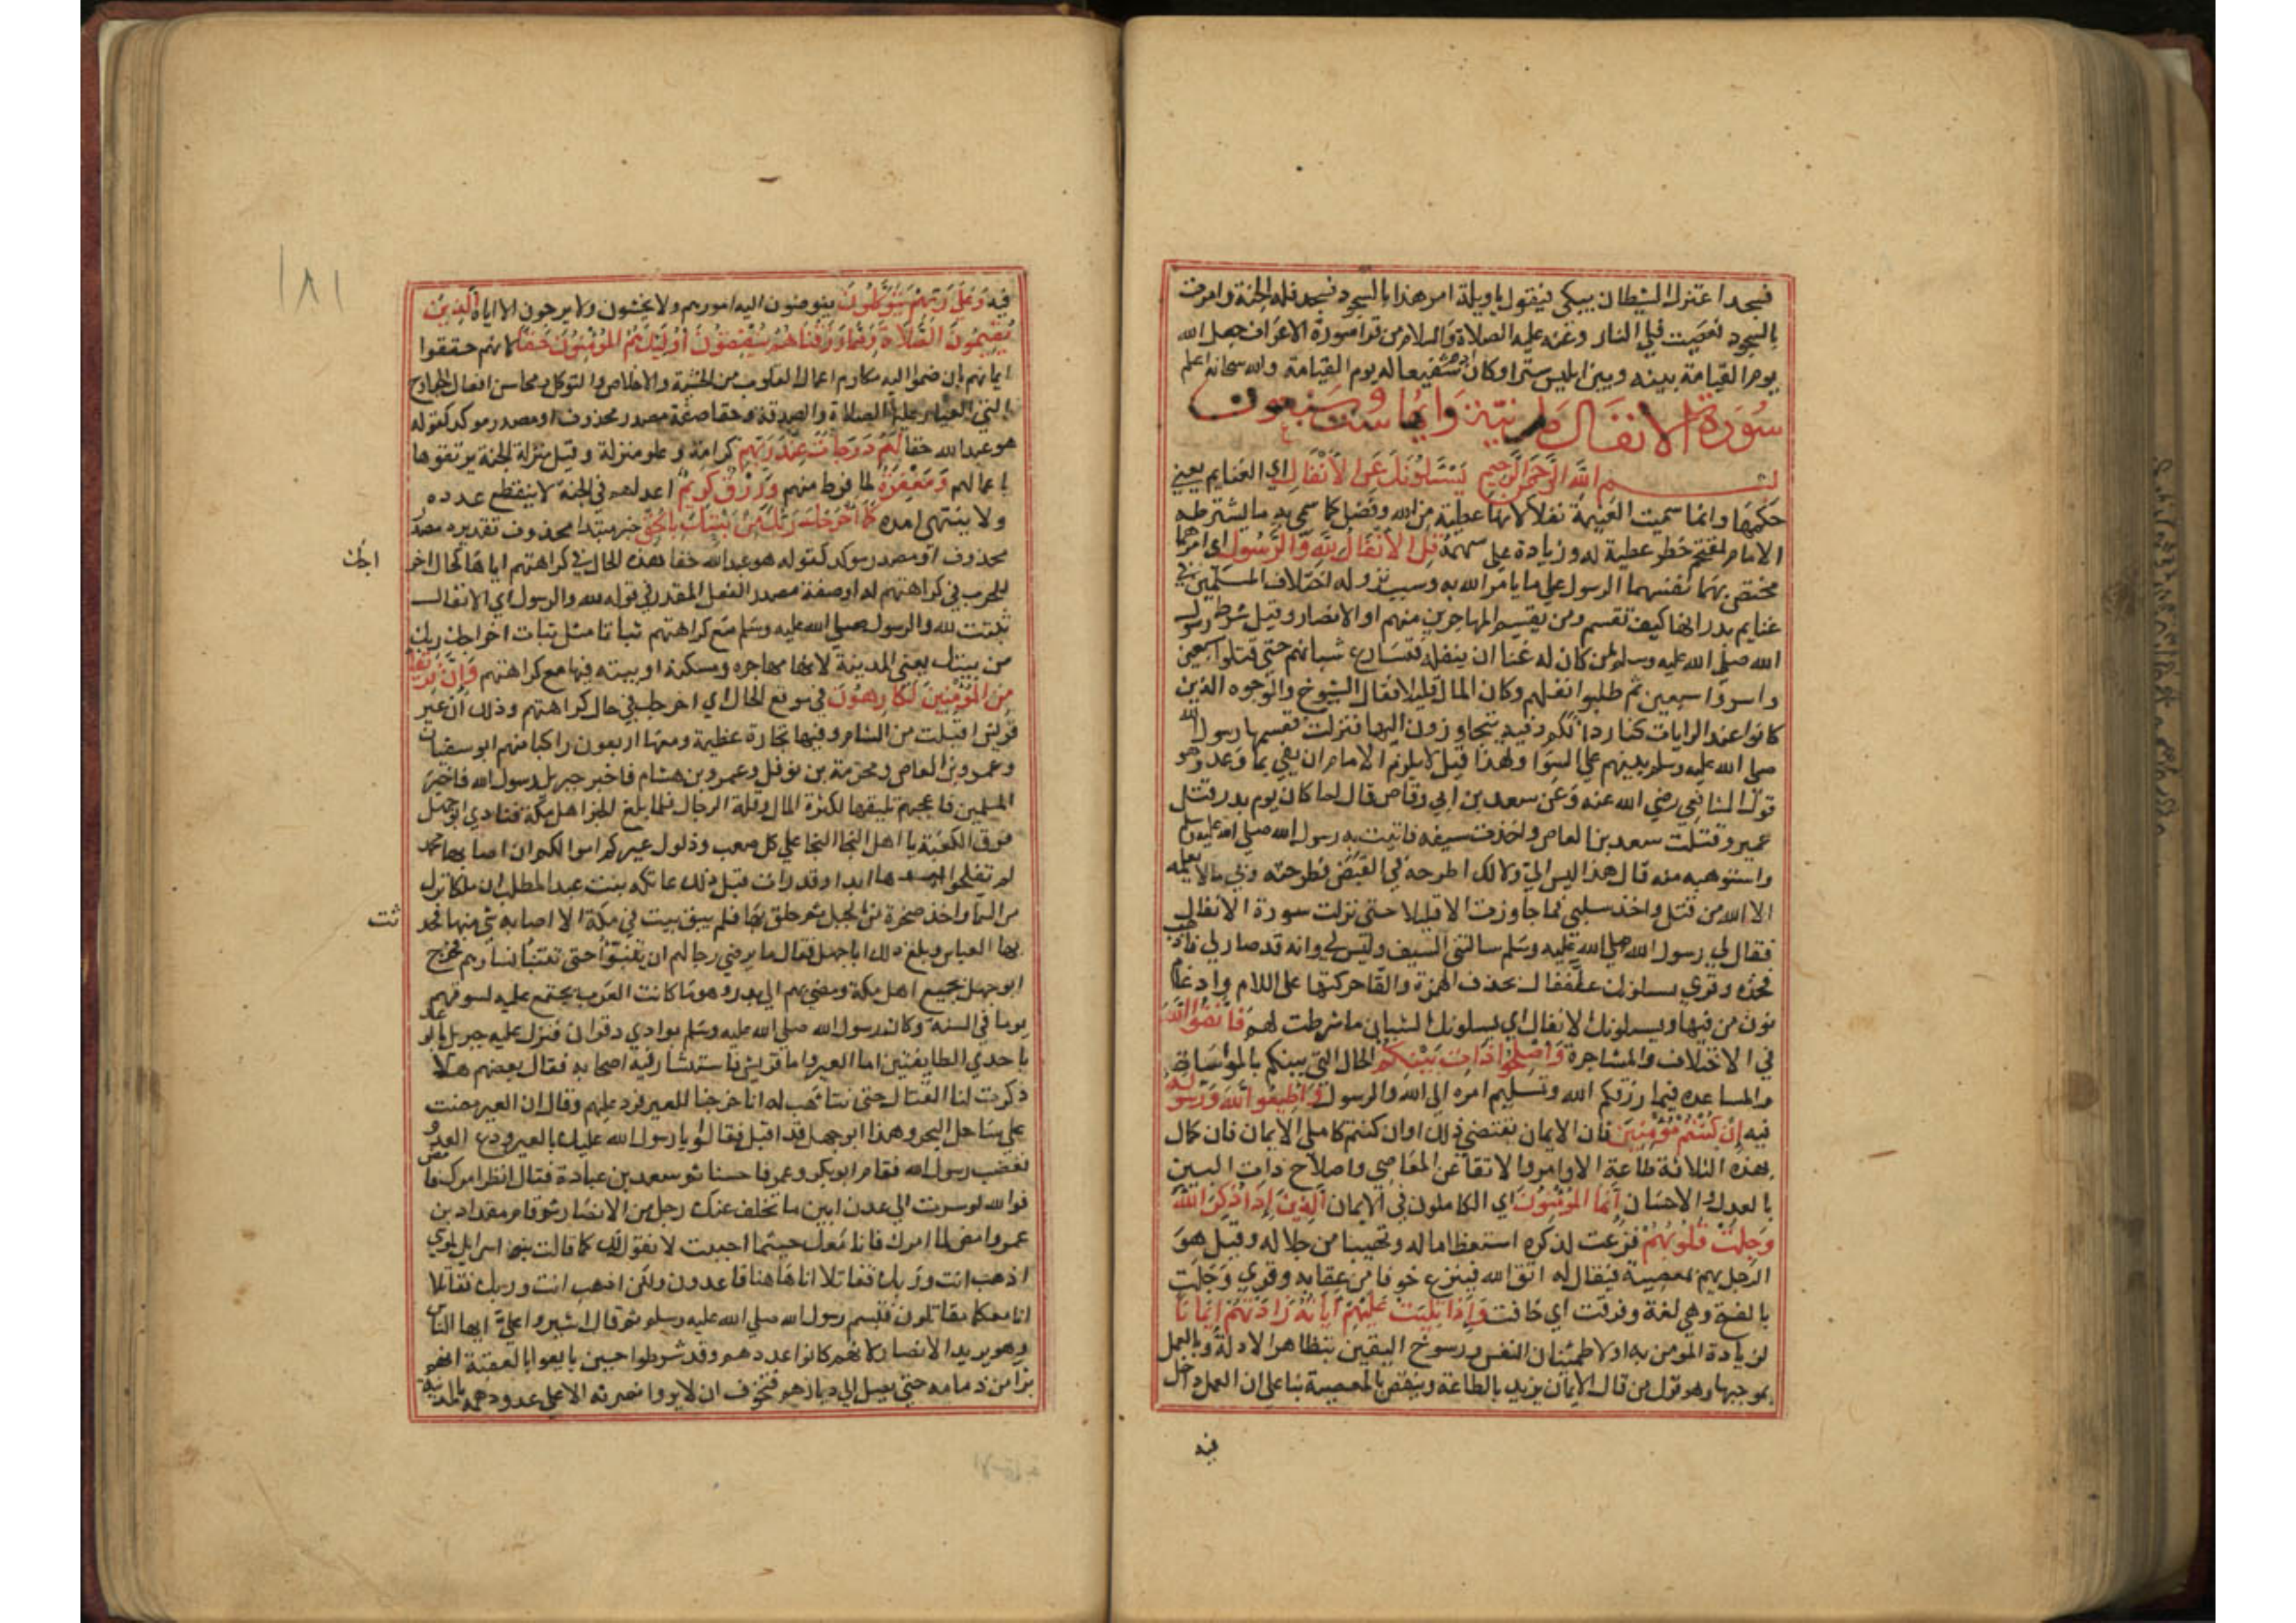 فسجد اعتزل الشيطان يبكي فيقول يا ويلة امر هذا بالسجود فسجد فله الجنة وامرت
بالسجود فعصيت فلي النار وعنه عليه الصلاة والسلام من قرا سورة الاعراف جعل الله
يوم القيامة بينه وبين ابليس سترا وكان ادم شفيعا له يوم القيامة والله سبحانه اعلم
سورة الانفال مدنية وايها ست وسبعون
بسم الله الرحمن الرحيم يسئلونك عن الانفال اي الغنايم يعني
حكمها وانما سميت الغنيمة نفلا لانها عطية من الله وفضل كما سمي به ما يشترطه
الامام لمقتحم خطر عطية له وزيادة على سهمه قل الانفال لله والرسول اي امرهما
مختص بهما يقسمها الرسول على ما يامر الله به وسبب نزوله اختلاف المسلمين في
غنايم بدر انها كيف تقسم ومن يقسم المهاجرين منهم او الانصار وقيل شرط رسول
الله صلى الله عليه وسلم لمن كان له غنا ان ينفله فتسارع شبانهم حتى قتلوا سبعين
واسروا سبعين ثم طلبوا نفلهم وكان المال قليلا فقال الشيوخ والوجوه الذين
كانوا عند الرايات كنا ردا لكم وفية تنحاوزون اليها فنزلت فقسمها رسول الله
صلى الله عليه وسلم بينهم على السوا ولهذا قيل لا يلزم الامام ان يفي بما وعد وهو
قول الشافعي رضي الله عنه وعن سعد بن ابي وقاص قال لما كان يوم بدر قتل
عمير وقتلت سعد بن العاص واخذت سيفه فاتيت به رسول الله صلى الله عليه وسلم
واستوهبه منه قال هذا ليس لي ولا لك اطرحه في القبض فطرحته وبي ما لا يعلمه
الا الله من قتل واخذ سلبي فما جاوزت الا قليلا حتى نزلت سورة الانفال
فقال لي رسول الله صلى الله عليه وسلم سالتني السيف وليس لي وانه قد صار لي فاذهب
فخذه وقري يسلونك علنفال بحذف الهمزة والقا حركتها على اللام وادغام
نون من فيها ويسلونك الانفال اي يسلونك الشبان ما شرطت لهم فاتقوا الله
في الاختلاف والمشاجرة واصلحوا ذات بينكم الحال التي بينكم بالمواساة
والمساعده فيما رزقكم الله وتسليم امره الى الله والرسول واطيعوا الله ورسوله
فيه ان كنتم مؤمنين فان الايمان يقتضي ذلك او ان كنتم كاملي الايمان فان كمال
بهذه الثلاثة طاعة الاوامر والاتقا عن المعاصي واصلاح ذات البين
بالعدل والاحسان انما المؤمنون اي الكاملون في الايمان الذين اذا ذكر الله
وجلت قلوبهم فزعت لذكره استعظاما له وتهيبا من جلاله وقيل هو
الرجل يهم بمعصية فيقال له اتق الله فينزع خوفا من عقابه وقري وجلت
بالفتح وهي لغة وفرقت اي خافت واذا تليت عليهم اياته زادتهم ايمانا
لزيادة المؤمن به او لاطمئنان النفس ورسوخ اليقين بتظاهر الادلة وبالعمل
بموجبها وهو قول من قال الايمان يزيد بالطاعة وينقص بالمعصية بنا على ان العمل داخل
فيه
١٨١
فيه وعلى ربهم يتوكلون يفوضون اليه امورهم ولا يخشون ولا يرجون الا اياه الذين
يقيمون الصلاة ومما رزقناهم ينفقون اولئك هم المؤمنون حقا لانهم حققوا
ايمانهم بان ضموا اليه مكارم اعمال القلوب من الخشية والاخلاص والتوكل ومحاسن افعال الجوارح
التي العيار عليها الصلاة والصدقة وحقا صفة مصدر محذوف او مصدر موكد كقوله
هو عبد الله حقا لهم درجات عند ربهم كرامة وعلو منزلة وقيل منزلة الجنة يرتقوها
باعمالهم ومغفرة لما فرط منهم ورزق كريم اعد لهم في الجنة لا ينقطع عدده
ولا ينتهي امده كما اخرجك ربك من بيتك بالحق خبر مبتدا محذوف تقديره
محذوف او مصدر موكد كقوله هو عبد الله حقا هذه الحال في كراهتهم اياها كحال اخر
اجك
للحرب في كراهتهم له او صفة مصدر الفعل المقدر في قوله لله والرسول اي الانفال
ثبتت لله والرسول صلى الله عليه وسلم مع كراهتهم ثباتا مثل ثبات اخراجك ربك
من بيتك يعني المدينة لانها مهاجره ومسكنه او بيته فيها مع كراهتهم وان فريقا
من المؤمنين لكارهون في موقع الحال اي اخرجك في حال كراهتهم وذلك ان عير
قريش اقبلت من الشام وفيها تجارة عظيمة ومعها اربعون راكبا منهم ابو سفيان
وعمرو بن العاص ومخرمة بن نوفل وعمرو بن هشام فاخبر جبريل رسول الله فاخبر
المسلمين فاعجبهم تلقيها لكثرة المال وقلة الرجال فلما بلغ الخبر اهل مكة فنادي ابو جهل
فوق الكعبة يا اهل النجا النجا على كل صعب وذلول عيركم اموالكم ان اصابها محمد
لم تفلحوا بعدها ابدا وقد رات قبل ذلك عاتكه بنت عبد المطلب ان ملكا نزل
من السما واخذ صخرة من الجبل ثم حلق بها فلم يبق بيت في مكة الا اصابه شي منها فحد
ثت
بها العباس وبلغ ذلك ابا جهل فقال ما يرضي رجالهم ان يتنبوا حتى تتنبا نساؤهم فخرج
ابو جهل بجميع اهل مكة ومضي بهم الى بدر وهو ما كانت العرب يجتمع عليه لسوقهم
يوما في السنة وكان رسول الله صلى الله عليه وسلم بوادي دقوان فنزل عليه جبريل بالوعد
باحدي الطايفتين اما العير واما قريش فاستشار فيه اصحابه فقال بعضهم هلا
ذكرت لنا القتال حتى نتاهب له انا خرجنا للعير فرد عليهم وقال ان العير مضت
على ساحل البحر وهذا ابو جهل قد اقبل فقالوا يا رسول الله عليك بالعير ودع العدو
فغضب رسول الله فقام ابو بكر وعمر فاحسنا ثم سعد بن عبادة فقال انظر امرك فامض
فوالله لو سرت الى عدن ابين ما تخلف عنك رجل من الانصار ثم قام مقداد بن
عمرو امض لما امرك فانا معك حيثما احببت لا نقول لك كما قالت بنو اسرايل لموسي
اذهب انت وربك فقاتلا انا هاهنا قاعدون ولكن اذهب انت وربك فقاتلا
انا معكما مقاتلون فتبسم رسول الله صلى الله عليه وسلم ثم قال اشيروا علي ايها الناس
وهو يريد الانصار لانهم كانوا عددهم وقد شرطوا حين بايعوا بالعقبة انهم
برا من ذمامه حتى يصل الى ديارهم فتخوف ان لا يروا نصرته الا على عدو دهمه بالمدينة